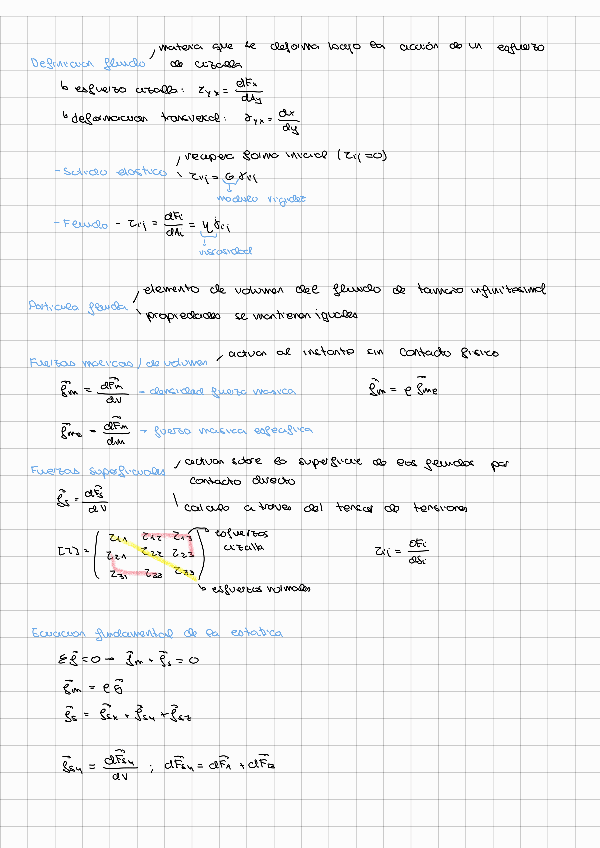 Definicion fluido / materia que se deforma bajo la acción de un esfuerzo
de cizalla
↳ esfuerzo cizalla: τyx = dFx/dAy
↳ deformacion transversal: γyx = dx/dy
- Solido elastico / recupera forma inicial (τij = 0)
\ τij = G γij
modulo rigidez
- Fluido - τij = dFi/dAi = η γ̇ij
viscosidad
Particula fluida / elemento de volumen del fluido de tamaño infinitesimal
\ propiedades se mantienen iguales
Fuerzas masicas / de volumen / actuan al instante sin contacto fisico
f⃗m = dF⃗m/dV → densidad fuerza masica    f⃗m = ρ f⃗me
f⃗me = dF⃗m/dm → fuerza masica especifica
Fuerzas superficiales / actuan sobre la superficie de los fluidos por
contacto directo
f⃗s = dF⃗s/dV \ calculo a traves del tensor de tensiones
[τ] = ( τ11 τ12 τ13 → esfuerzos
τ21 τ22 τ23 cizalla    τij = dFi/dSi
τ31 τ32 τ33 )
↳ esfuerzos normales
Ecuacion fundamental de la estatica
Σf⃗ = 0 → f⃗m + f⃗s = 0
f⃗m = ρ g⃗
f⃗s = f⃗sx + f⃗sy + f⃗sz
f⃗sy = dF⃗sy/dV ; dF⃗sy = dF⃗1 + dF⃗2